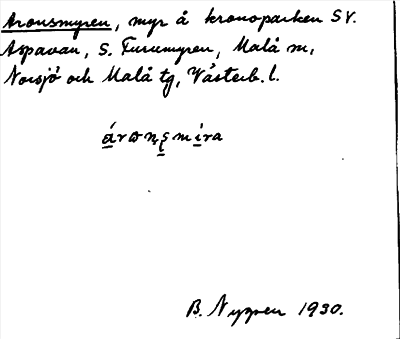 Aronsmyren, myr å kronoparken SV.
Aspavan, S. Furumyren, Malå sn,
Norsjö och Malå tg, Västerb. l.
árωn̥ʂmìra
B. Nygren 1930.